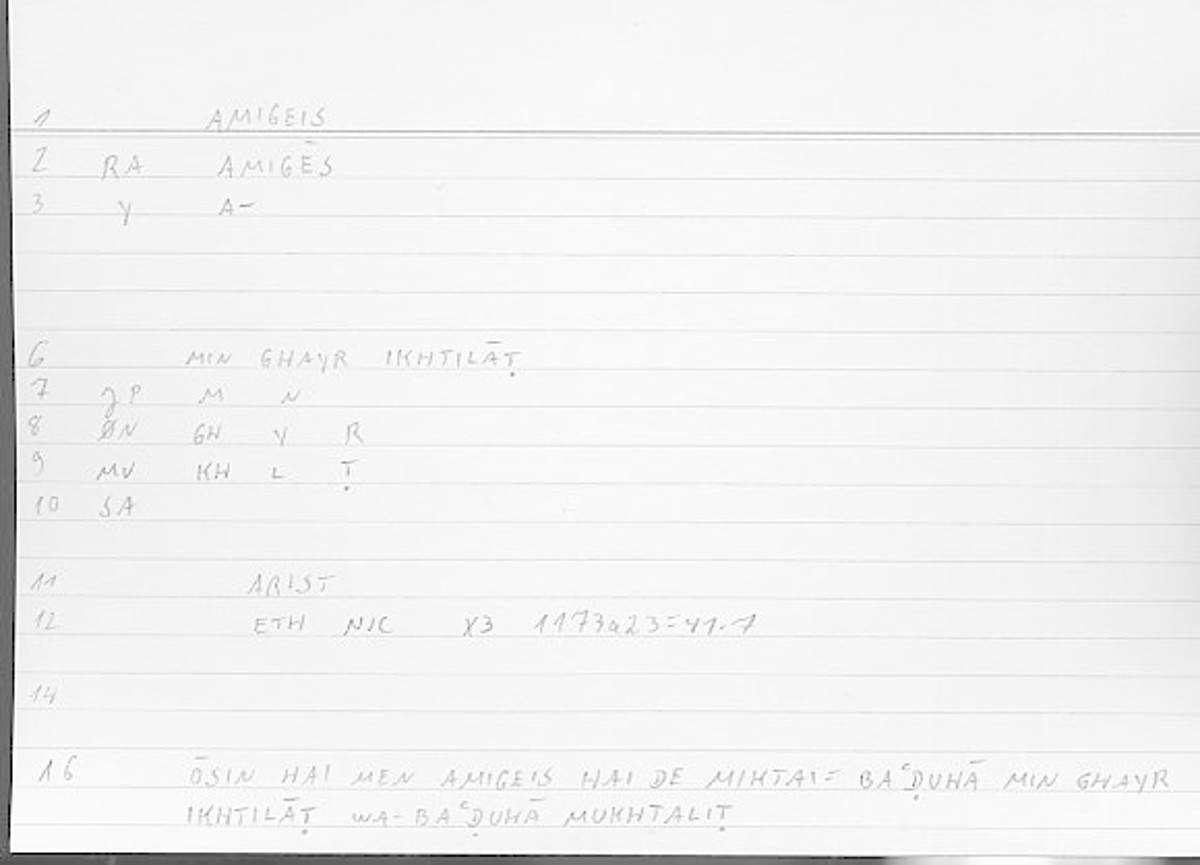 1 AMIGEIS
2 RA AMIGĒS
3 Y A-
6 MIN GHAYR IKHTILĀṬ
7 JP M N
8 ØN GH Y R
9 MV KH L Ṭ
10 SA
11 ARIST
12 ETH NIC X3 1173a23=41.7
14
16 ŌSIN HAI MEN AMIGEIS HAI DE MIKTAI= BAʿḌUHĀ MIN GHAYR
IKHTILĀṬ WA-BAʿḌUHĀ MUKHTALIṬ